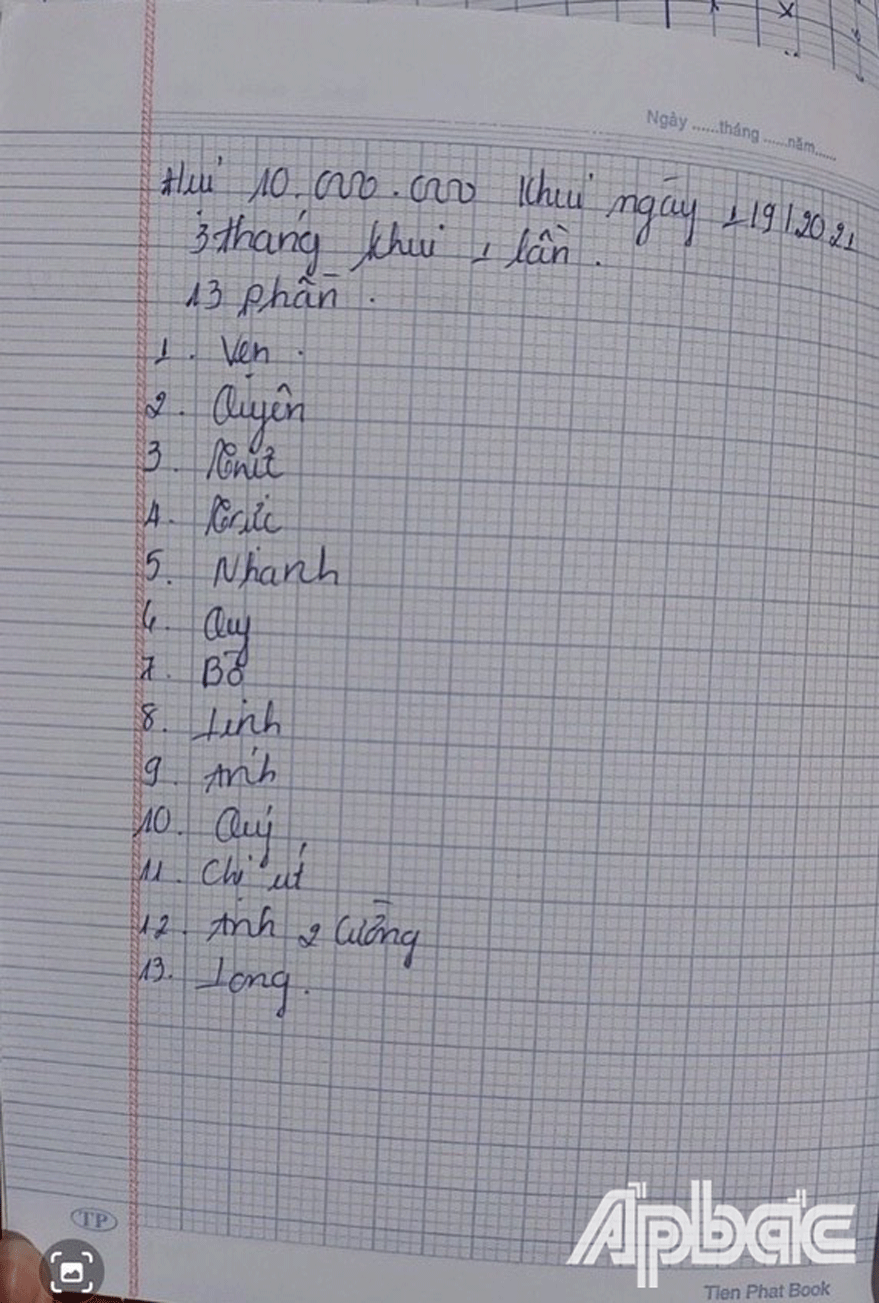 Ngày ......tháng ......năm......
Hụi 10.000.000 khui ngày 1/9/2021
3 tháng khui 1 lần.
13 phần.
1. Vẹn.
2. Quyên
3.
4. Trúc
5. Nhanh
6. Quy
7. Bo
8. Linh
9. Anh
10. Quý
11. Chị út
12. Anh 2 Cường
13. Long.
TP
Apbac
Tien Phat Book